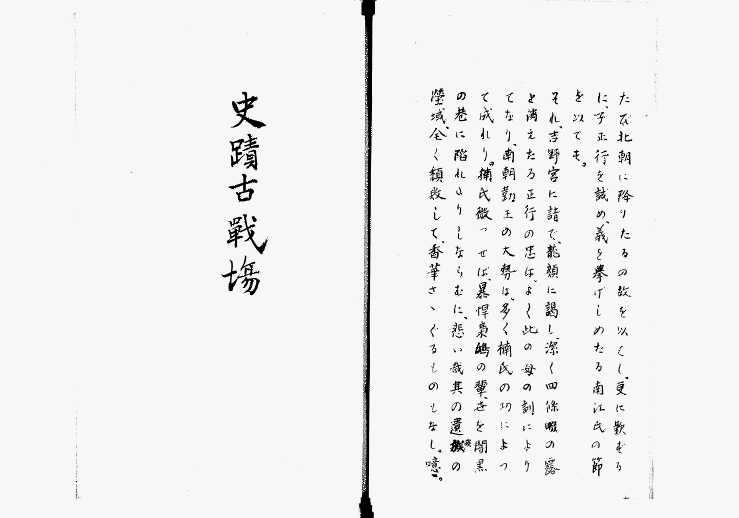 たび北朝に降りたるの故を以てし、更に歎むる
に、子正行を誡め、義を擧げしめたる南江氏の節
を以ても。
それ、吉野宮に詣で、龍顔に謁し、潔く四條畷の露
と消えたる正行の忠は、よく此の母の訓により
てなり、南朝勤王の大勢は、多く楠氏の功によつ
て成れり。楠氏微つせば、暴悍梟鴟の輩、世を闇黒
の巷に陷れ了りしならむに、悲い哉其の遺の
塋域、全く頽敗して、香華さゝぐるものもなし。噫。
史蹟古戰塲